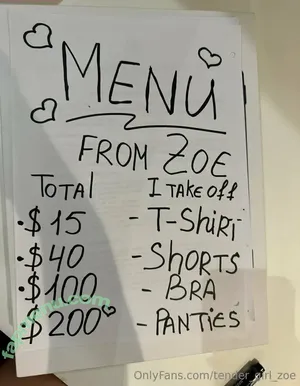 MENU
FROM ZOE
TOTAL I TAKE OFF
•$15 - T-SHIRT
•$40 - SHORTS
•$100 - BRA
•$200 - PANTIES
OnlyFans.com/tender_girl_zoe